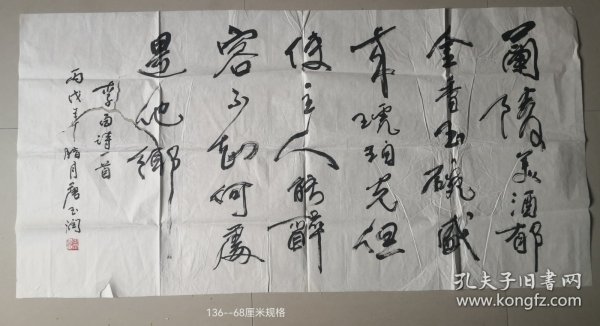 蘭陵美酒郁
金香玉碗盛
来琥珀光但
使主人能醉
客不知何處
是他鄉
李白詩一首
丙戌年腊月唐玉润
136--68厘米规格
孔夫子旧书网
www.kongfz.com